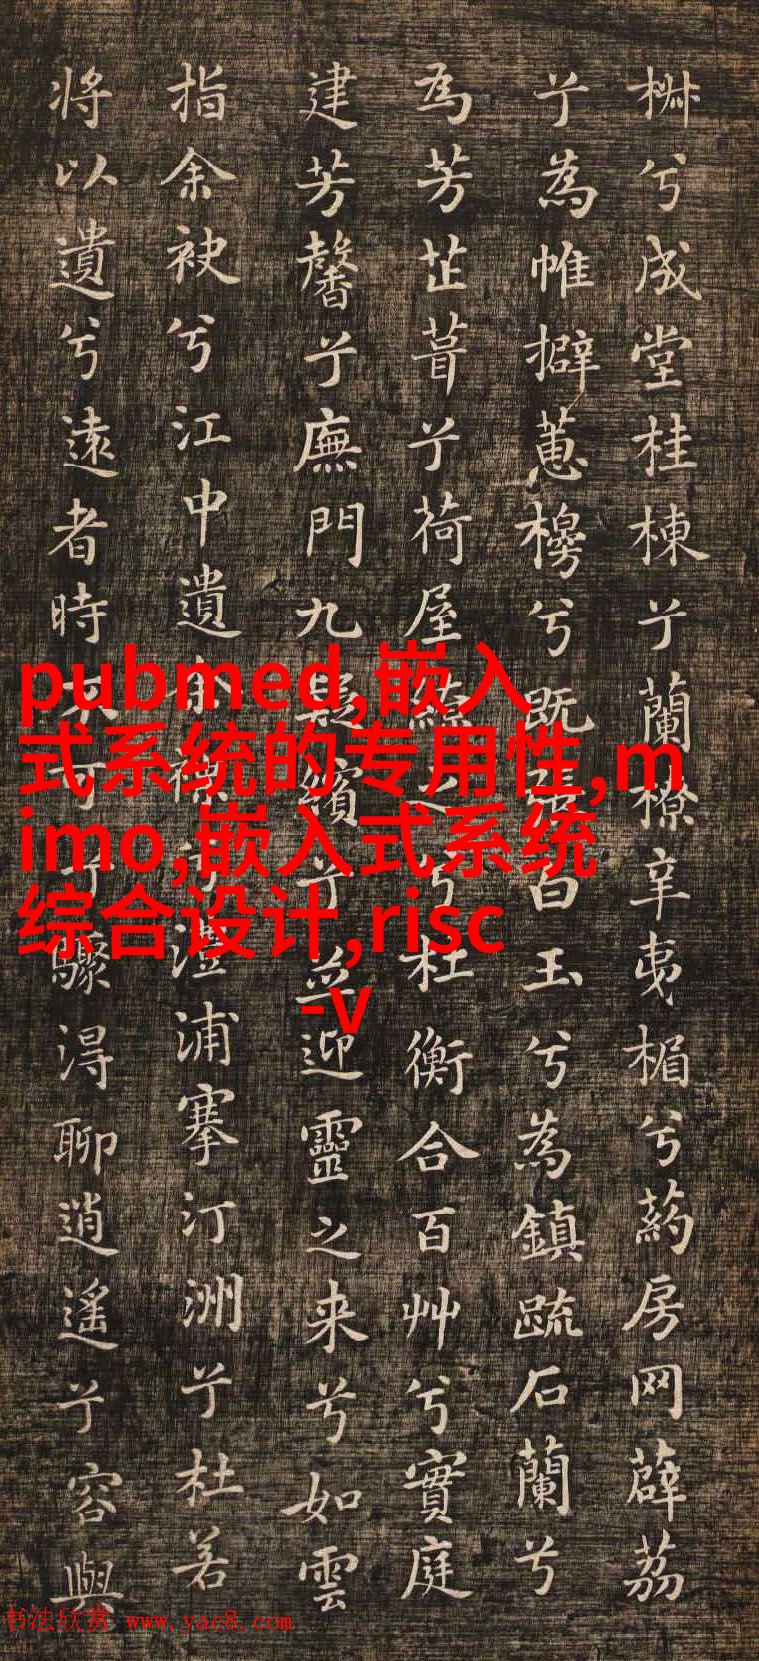 椒兮成堂桂棟兮蘭橑辛夷楣兮葯房网薜荔
兮為帷擗蕙櫋兮既張白玉兮為鎮疏石蘭兮
為芳芷葺兮荷屋繚之兮杜衡合百艸兮實庭
建芳馨兮廡門九疑繽兮並迎靈之来兮如雲
指余袂兮江中遺余褋兮澧浦搴汀洲兮杜若
将以遺兮遠者時不可兮驟得聊逍遙兮容與
pubmed,嵌入
式系统的专用性,m
imo,嵌入式系统
综合设计,risc
-v
书法欣赏 www.yac8.com